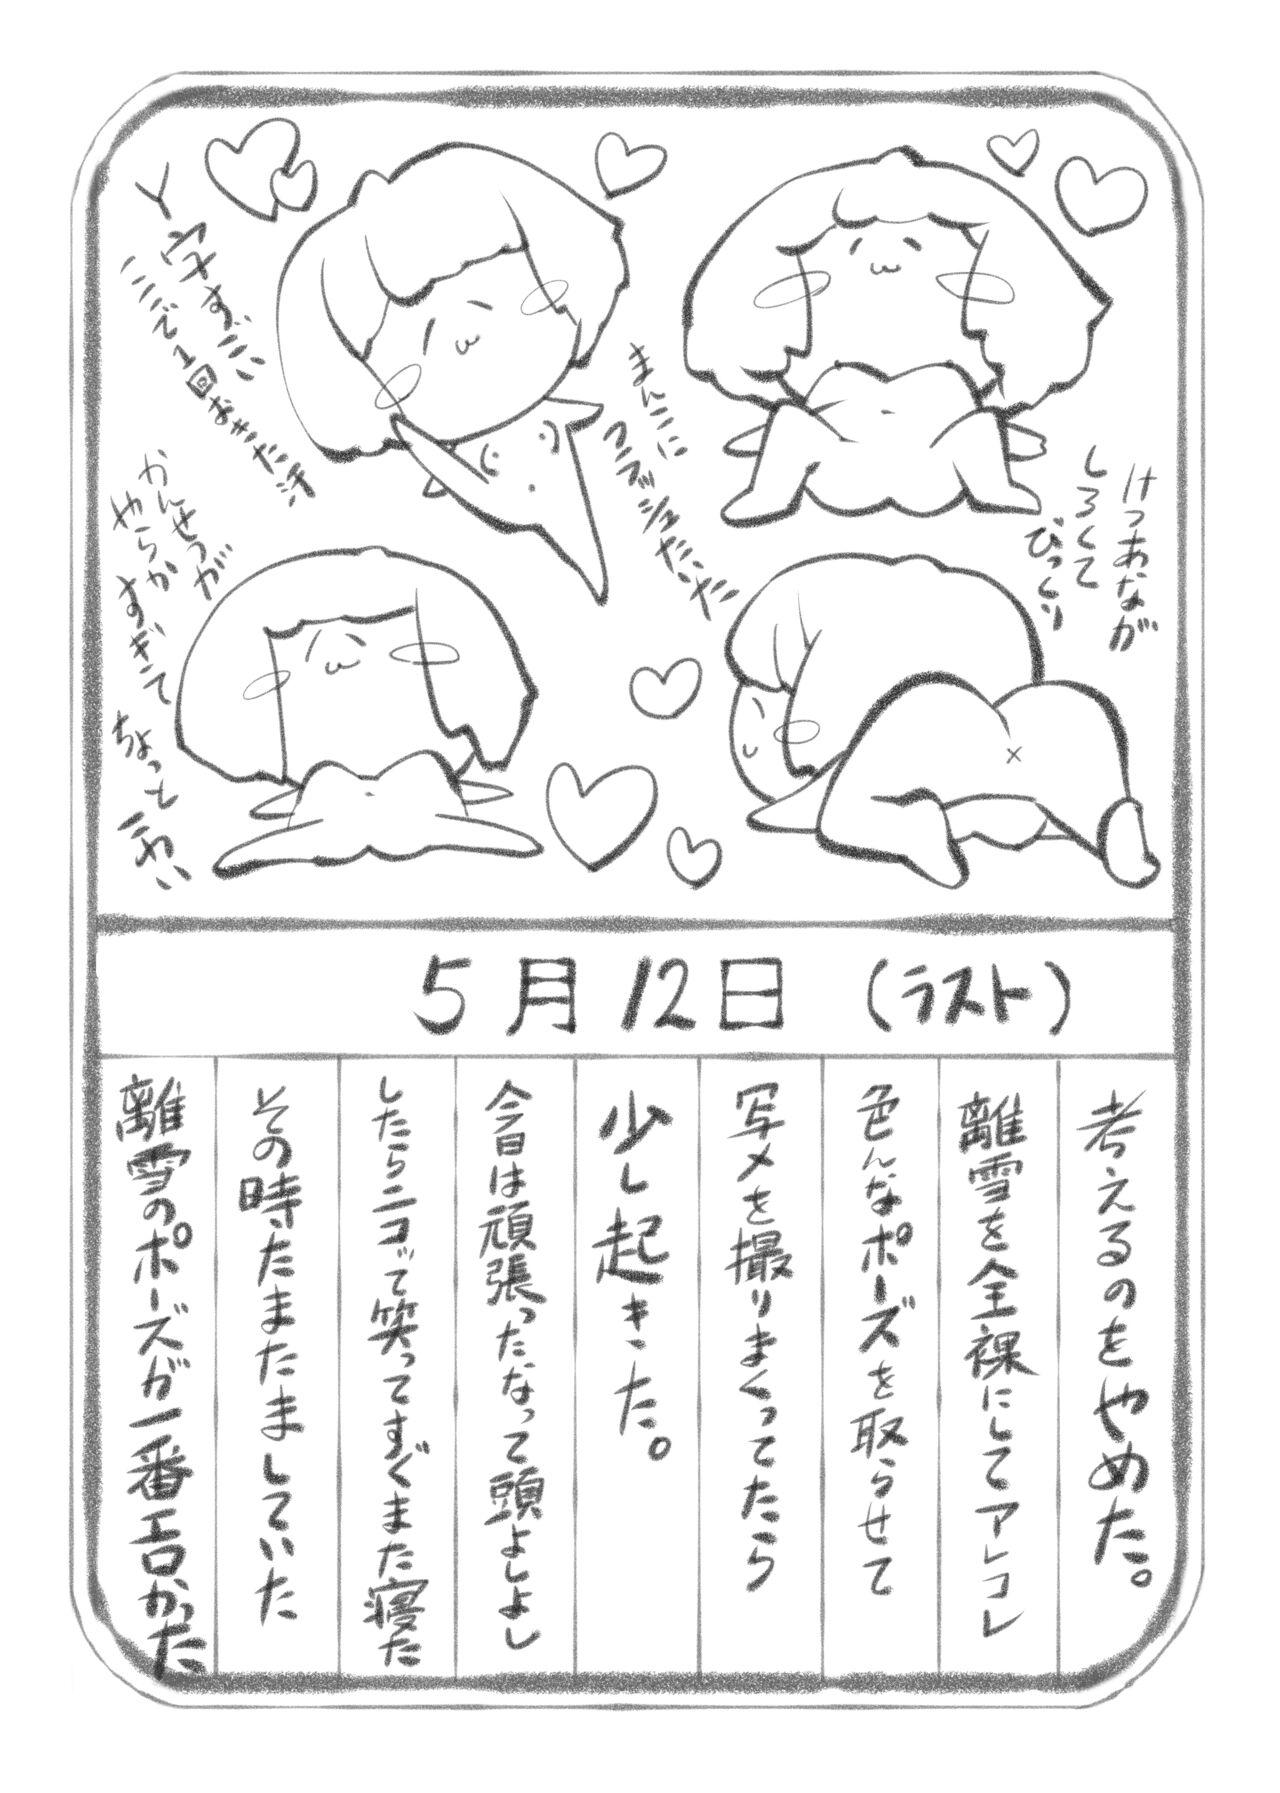 Y字すごい
ここで1回おきた汗
まんこに
フラッシュたいた
けつあなが
しろくて
びっくり
かんせつが
やらか
すぎて
ちょっと
こわい
5月12日（ラスト）
考えるのをやめた。
離雪を全裸にしてアレコレ
色んなポーズを取らせて
写メを撮りまくってたら
少し起きた。
今日は頑張ったなって頭よしよし
したらニコって笑ってすぐまた寝た
その時たまたましていた
離雪のポーズが一番エロかった